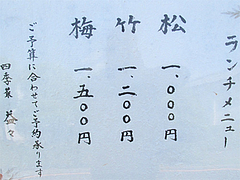 ランチメニュー
松 一、〇〇〇円
竹 一、二〇〇円
梅 一、五〇〇円
ご予算に合わせてご予約承ります
四季菜